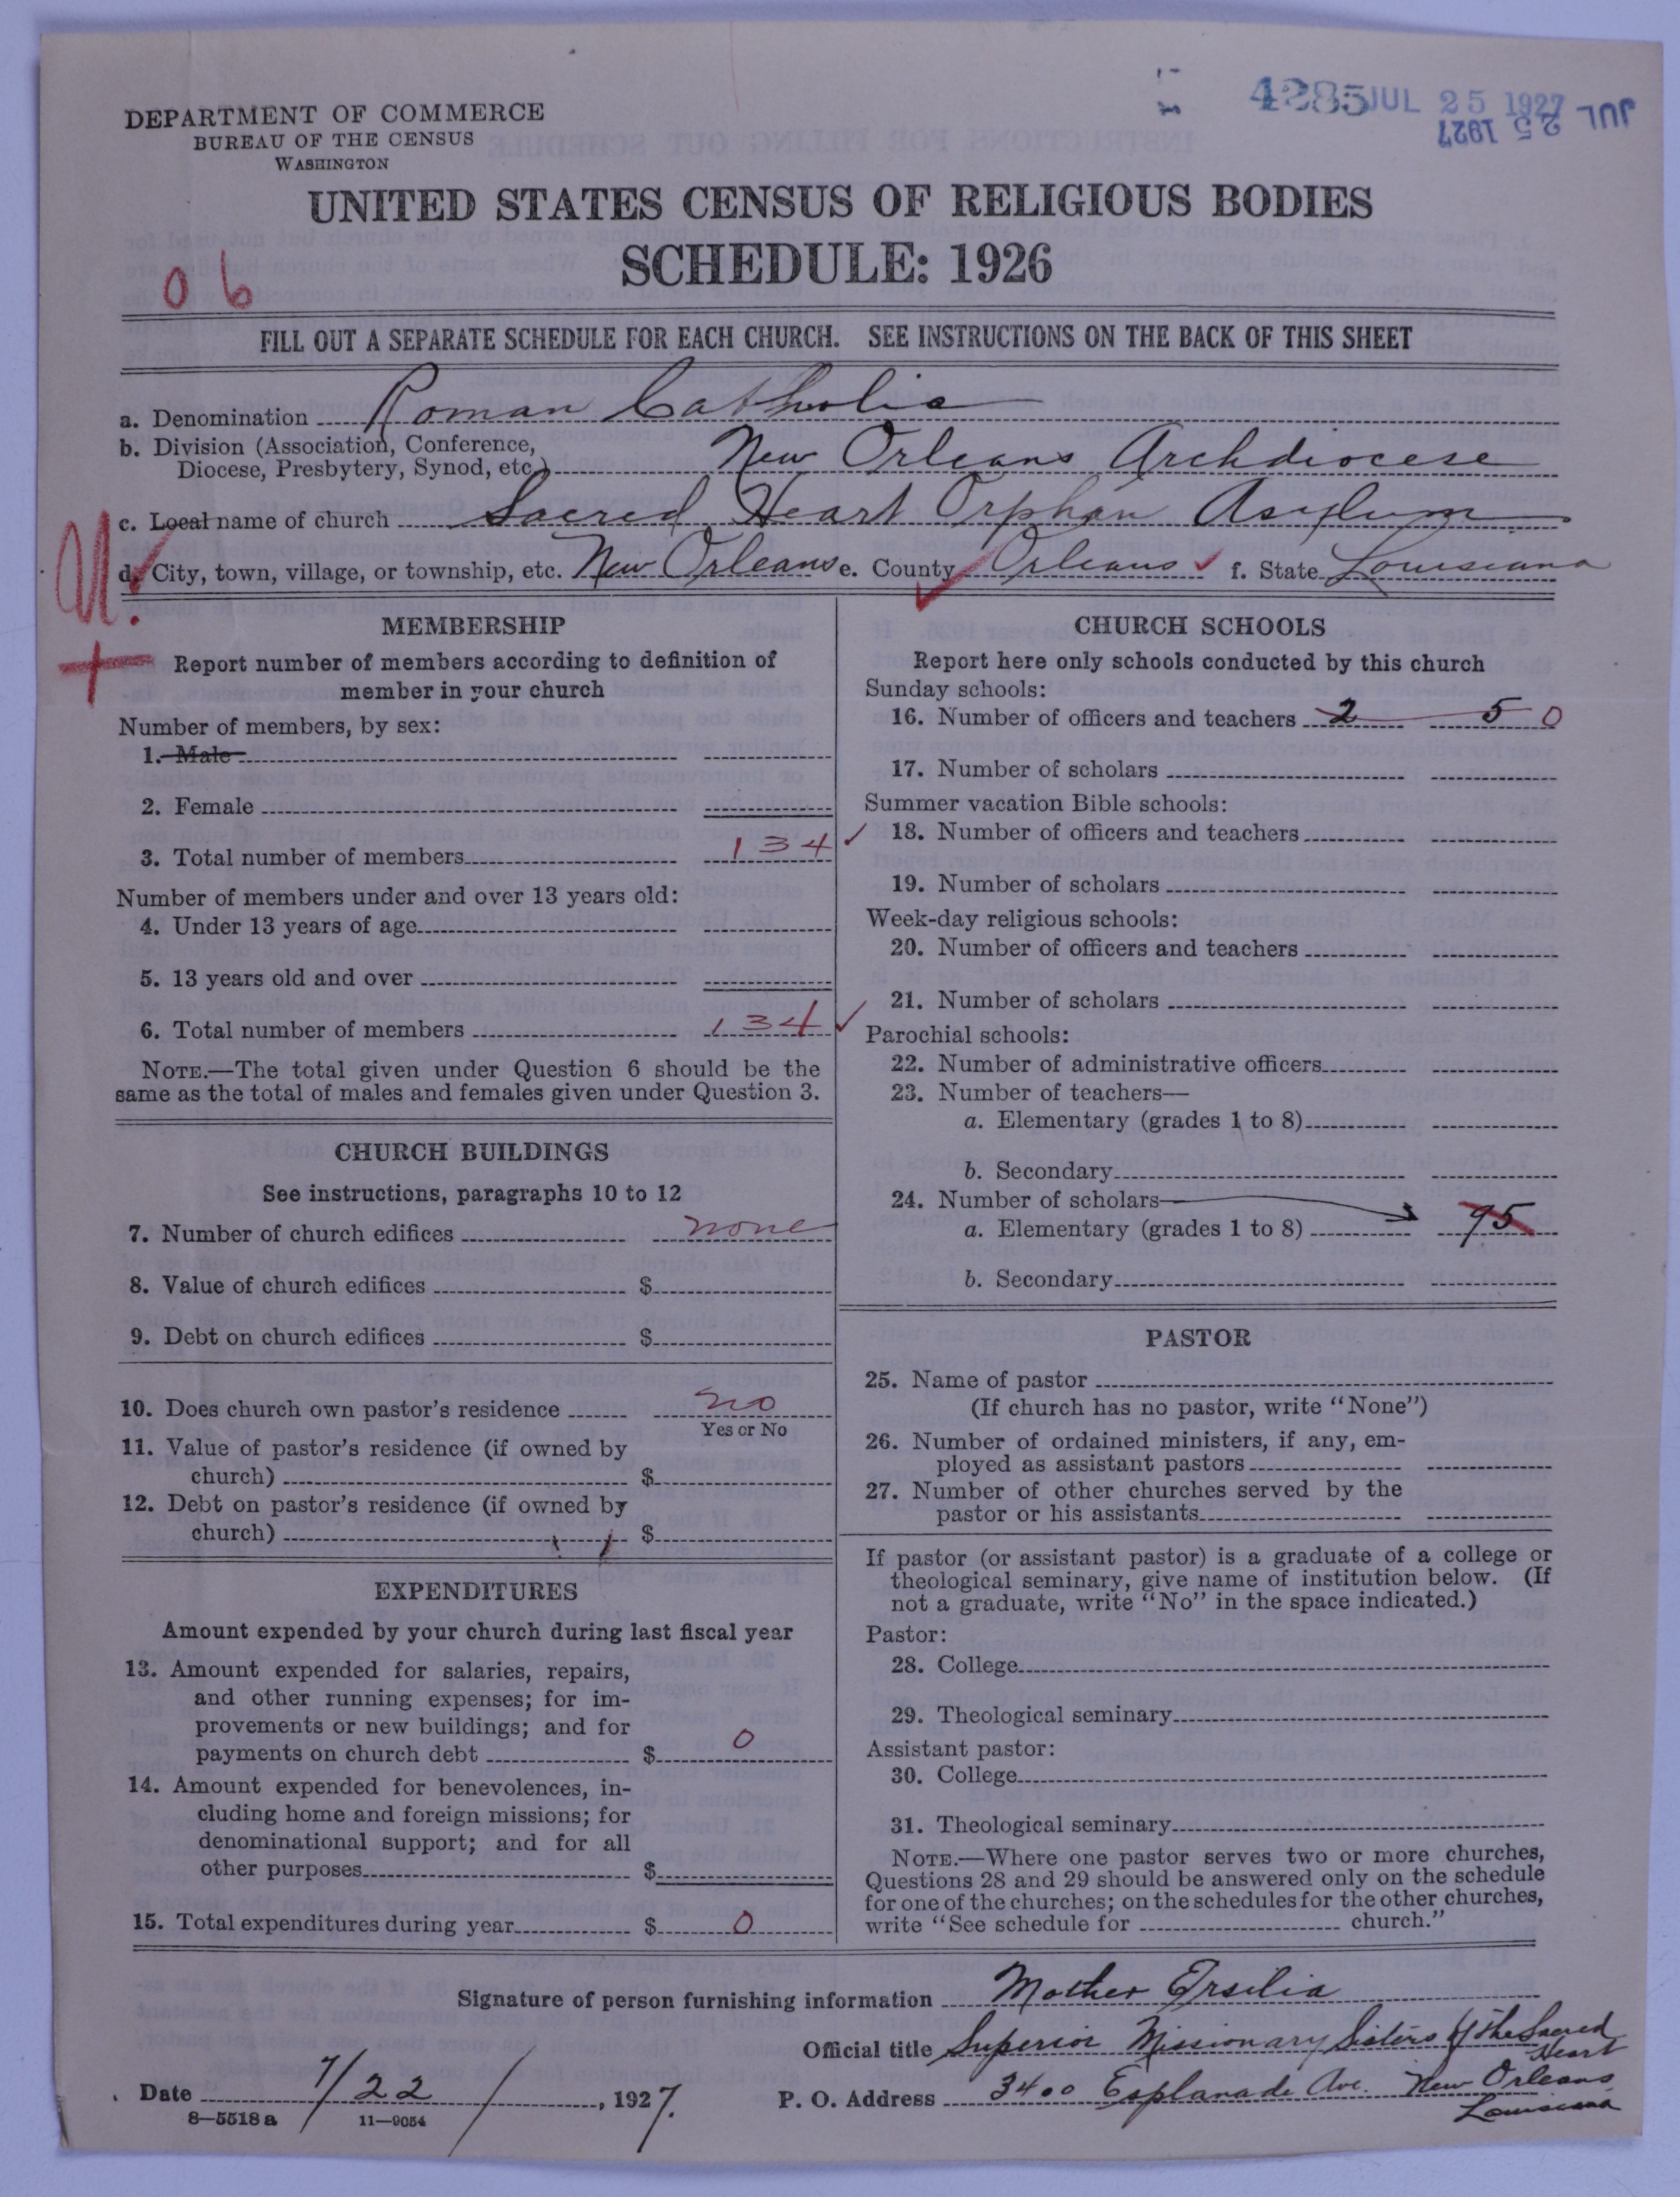 4285 JUL 25 1927
JUL 25 1927
DEPARTMENT OF COMMERCE
BUREAU OF THE CENSUS
WASHINGTON
UNITED STATES CENSUS OF RELIGIOUS BODIES
SCHEDULE: 1926
06
FILL OUT A SEPARATE SCHEDULE FOR EACH CHURCH. SEE INSTRUCTIONS ON THE BACK OF THIS SHEET
a. Denomination Roman Catholic
b. Division (Association, Conference,
Diocese, Presbytery, Synod, etc.) New Orleans Archdiocese
c. Local name of church Sacred Heart Orphan Asylum
d. City, town, village, or township, etc. New Orleans e. County Orleans f. State Louisiana
MEMBERSHIP
Report number of members according to definition of
member in your church
Number of members, by sex:
1. Male
2. Female
3. Total number of members 134
Number of members under and over 13 years old:
4. Under 13 years of age
5. 13 years old and over
6. Total number of members 134
NOTE.—The total given under Question 6 should be the
same as the total of males and females given under Question 3.
CHURCH BUILDINGS
See instructions, paragraphs 10 to 12
7. Number of church edifices none
8. Value of church edifices $
9. Debt on church edifices $
10. Does church own pastor's residence no
Yes or No
11. Value of pastor's residence (if owned by
church) $
12. Debt on pastor's residence (if owned by
church) $
EXPENDITURES
Amount expended by your church during last fiscal year
13. Amount expended for salaries, repairs,
and other running expenses; for im-
provements or new buildings; and for
payments on church debt $ 0
14. Amount expended for benevolences, in-
cluding home and foreign missions; for
denominational support; and for all
other purposes $
15. Total expenditures during year $ 0
CHURCH SCHOOLS
Report here only schools conducted by this church
Sunday schools:
16. Number of officers and teachers 2 5 0
17. Number of scholars
Summer vacation Bible schools:
18. Number of officers and teachers
19. Number of scholars
Week-day religious schools:
20. Number of officers and teachers
21. Number of scholars
Parochial schools:
22. Number of administrative officers
23. Number of teachers—
a. Elementary (grades 1 to 8)
b. Secondary
24. Number of scholars—
a. Elementary (grades 1 to 8) 95
b. Secondary
PASTOR
25. Name of pastor
(If church has no pastor, write "None")
26. Number of ordained ministers, if any, em-
ployed as assistant pastors
27. Number of other churches served by the
pastor or his assistants
If pastor (or assistant pastor) is a graduate of a college or
theological seminary, give name of institution below. (If
not a graduate, write "No" in the space indicated.)
Pastor:
28. College
29. Theological seminary
Assistant pastor:
30. College
31. Theological seminary
NOTE.—Where one pastor serves two or more churches,
Questions 28 and 29 should be answered only on the schedule
for one of the churches; on the schedules for the other churches,
write "See schedule for church."
Signature of person furnishing information Mother Ersilia
Official title Superior Missionary Sisters of the Sacred
Heart
Date 7/22/, 1927. P. O. Address 3400 Esplanade Ave. New Orleans
Louisiana
8—5518a 11—9054